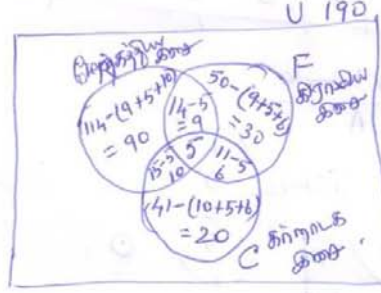 U 190
மேற்கத்திய
இசை
F
கிராமிய
இசை
114-(9+5+10)
= 90
14-5
=9
50-(9+5+6)
=30
15-5
10
5
11-5
6
41-(10+5+6)
=20
C கர்நாடக
இசை.